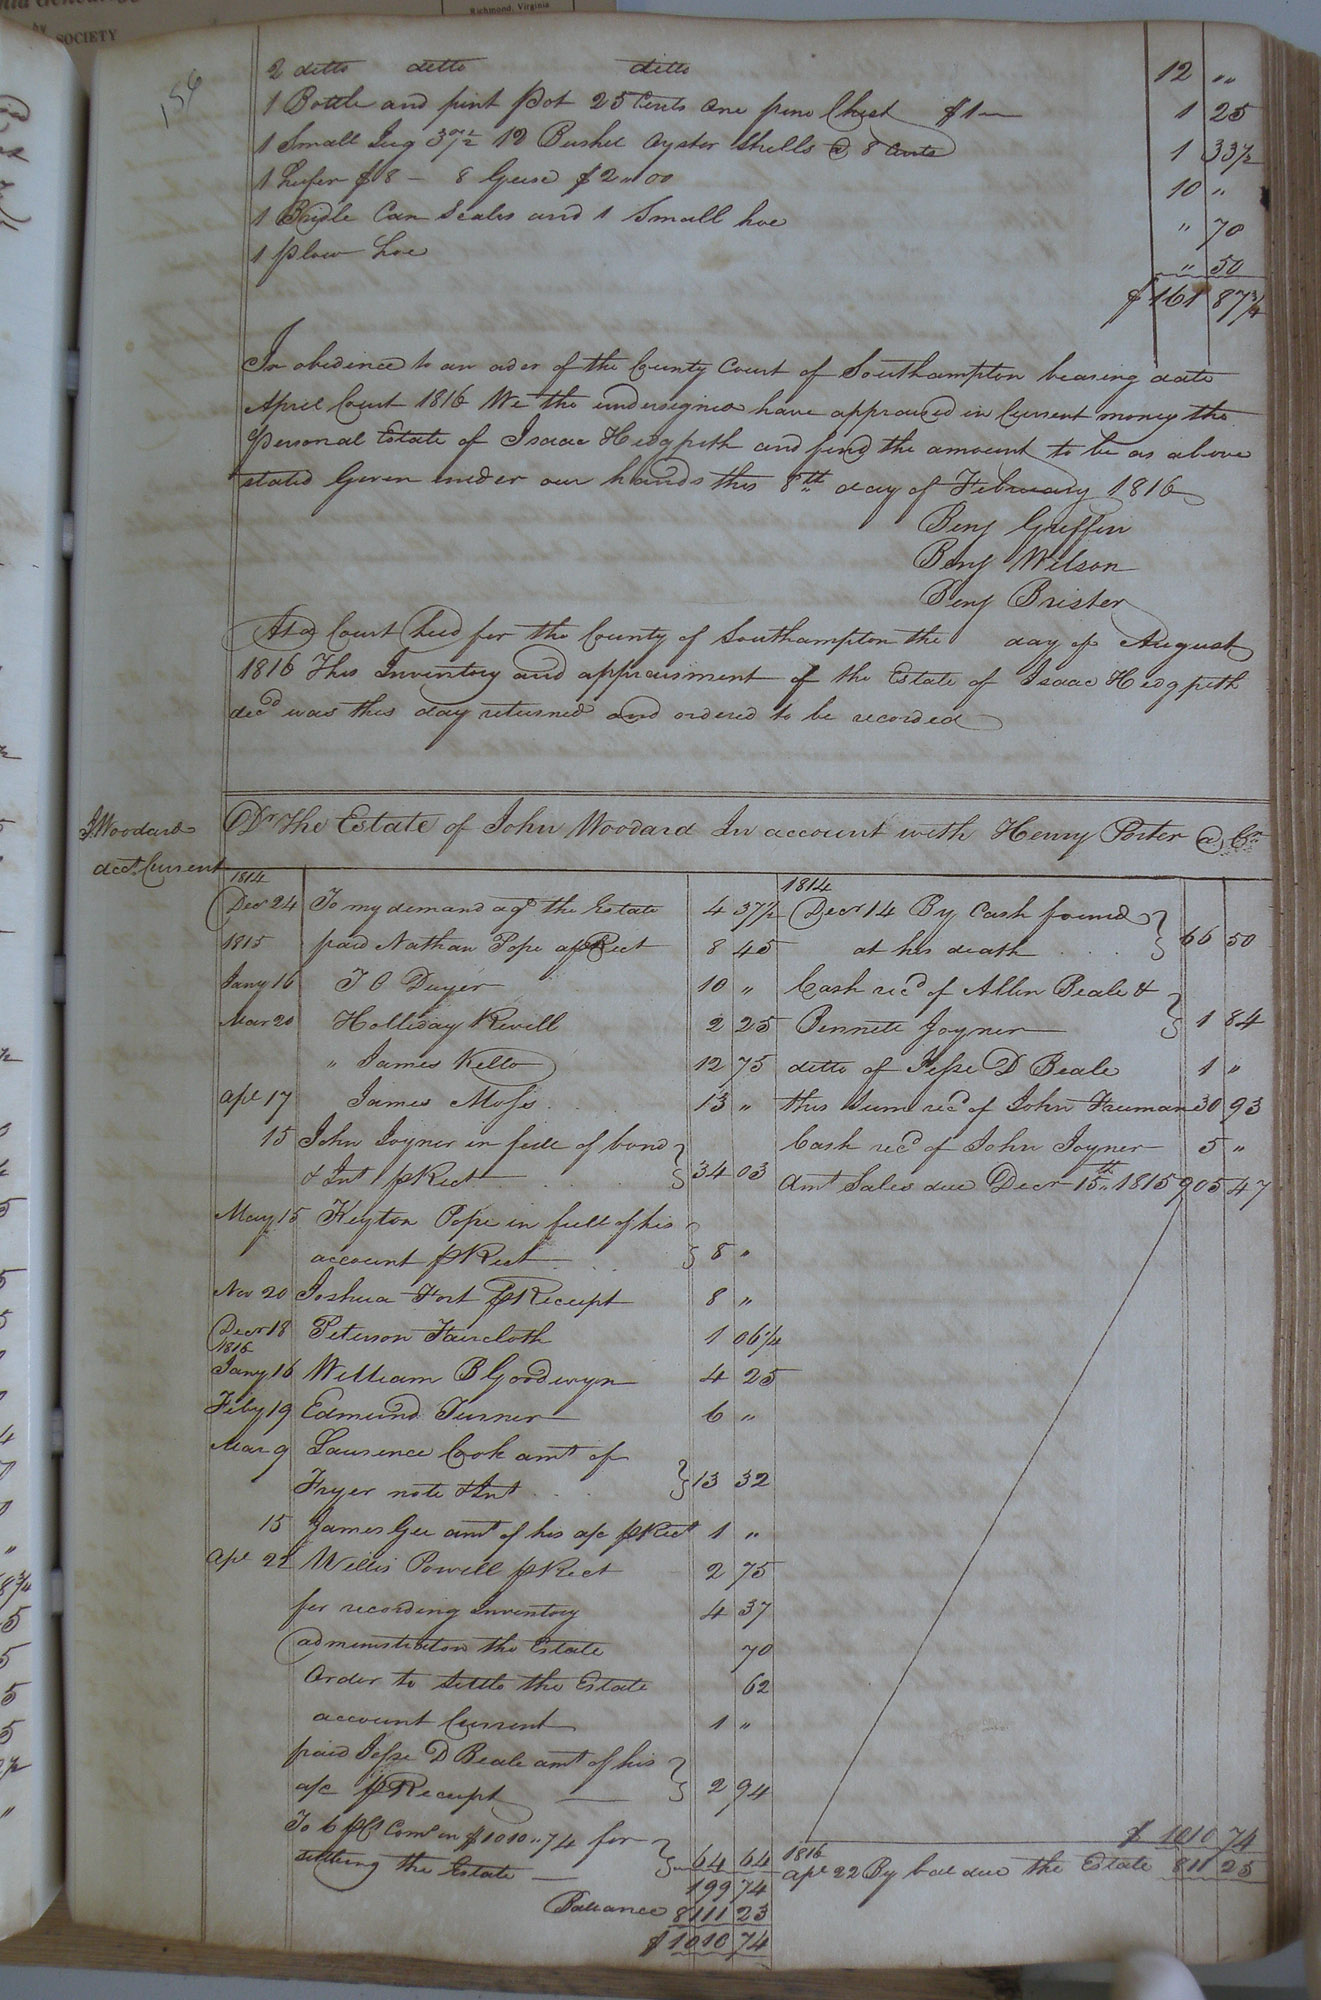 Richmond, Virginia
by
SOCIETY
156
2 ditto ditto ditto 12 "
1 Bottle and pint Pot 25 Cents one pine Chest $1— 1 25
1 Small Jug 37½ 12 Bushel Oyster Shells @ 8 Cents 1 33½
1 Heifer $8 – 8 Geese $2"00 10 "
1 Bridle Can Scales and 1 Small hoe " 70
1 plow hoe " 50
$ 161 87¾
In obedince to an oder of the County Court of Southampton bearing date
April Court 1816 We the undersigned have appraised in Current money the
Personal Estate of Isaac Hedgpeth and find the amount to be as above
stated Given under our hands this 8th day of February 1816
Benj Griffin
Benj Wilson
Benj Brister
At a Court held for the County of Southampton the day of August
1816 This Inventory and appraisment of the Estate of Isaac Hedgpeth
decd was this day returned and ordered to be recorded
J Woodard
acct. Current
Dr The Estate of John Woodard In account with Henry Porter @ Cr
1814
Decr 24 To my demand agt the Estate 4 37½
1815 paid Nathan Pope as pr Rect 8 45
Jany 16 T O Dwyer 10 "
Mar 20 Holliday Revill 2 25
" James Kello 12 75
Apl 17 James Moss 13 "
15 John Joyner in full of bond
& Int pr Rect 34 03
May 15 Keyton Pope in full of his
account pr Rect 8 "
Nov 20 Joshua Fort pr Receipt 8 "
Decr 18 Peterson Faircloth 1 06¼
1816
Jany 16 William B Goodwyn 4 25
Feby 19 Edmund Turner 6 "
Mar 9 Laurence Cook amt of
Fryer note & Int 13 32
15 James Gee amt of his a/c pr Rect 1 "
Apl 22 Willis Powell pr Rect 2 75
for recording Inventory 4 37
administration the Estate 70
Order to Settle the Estate 62
account Current 1 "
paid Jesse D Beale amt of his
a/c pr Receipt 2 94
To 6 pCt Comn on $1010"74 for
settling the Estate 64 64
199 74
Balance 8111 23
$ 1010 74
1814
Decr 14 By Cash found
at his death 66 50
Cash recd of Allen Beale &
Bennett Joyner 1 84
ditto of Jesse D Beale 1 "
this sum recd of John Freeman 30 93
Cash recd of John Joyner 5 "
Amt Sales due Decr 15th 1815 905 47
$ 1010 74
1816
Apl 22 By bal due the Estate 811 23